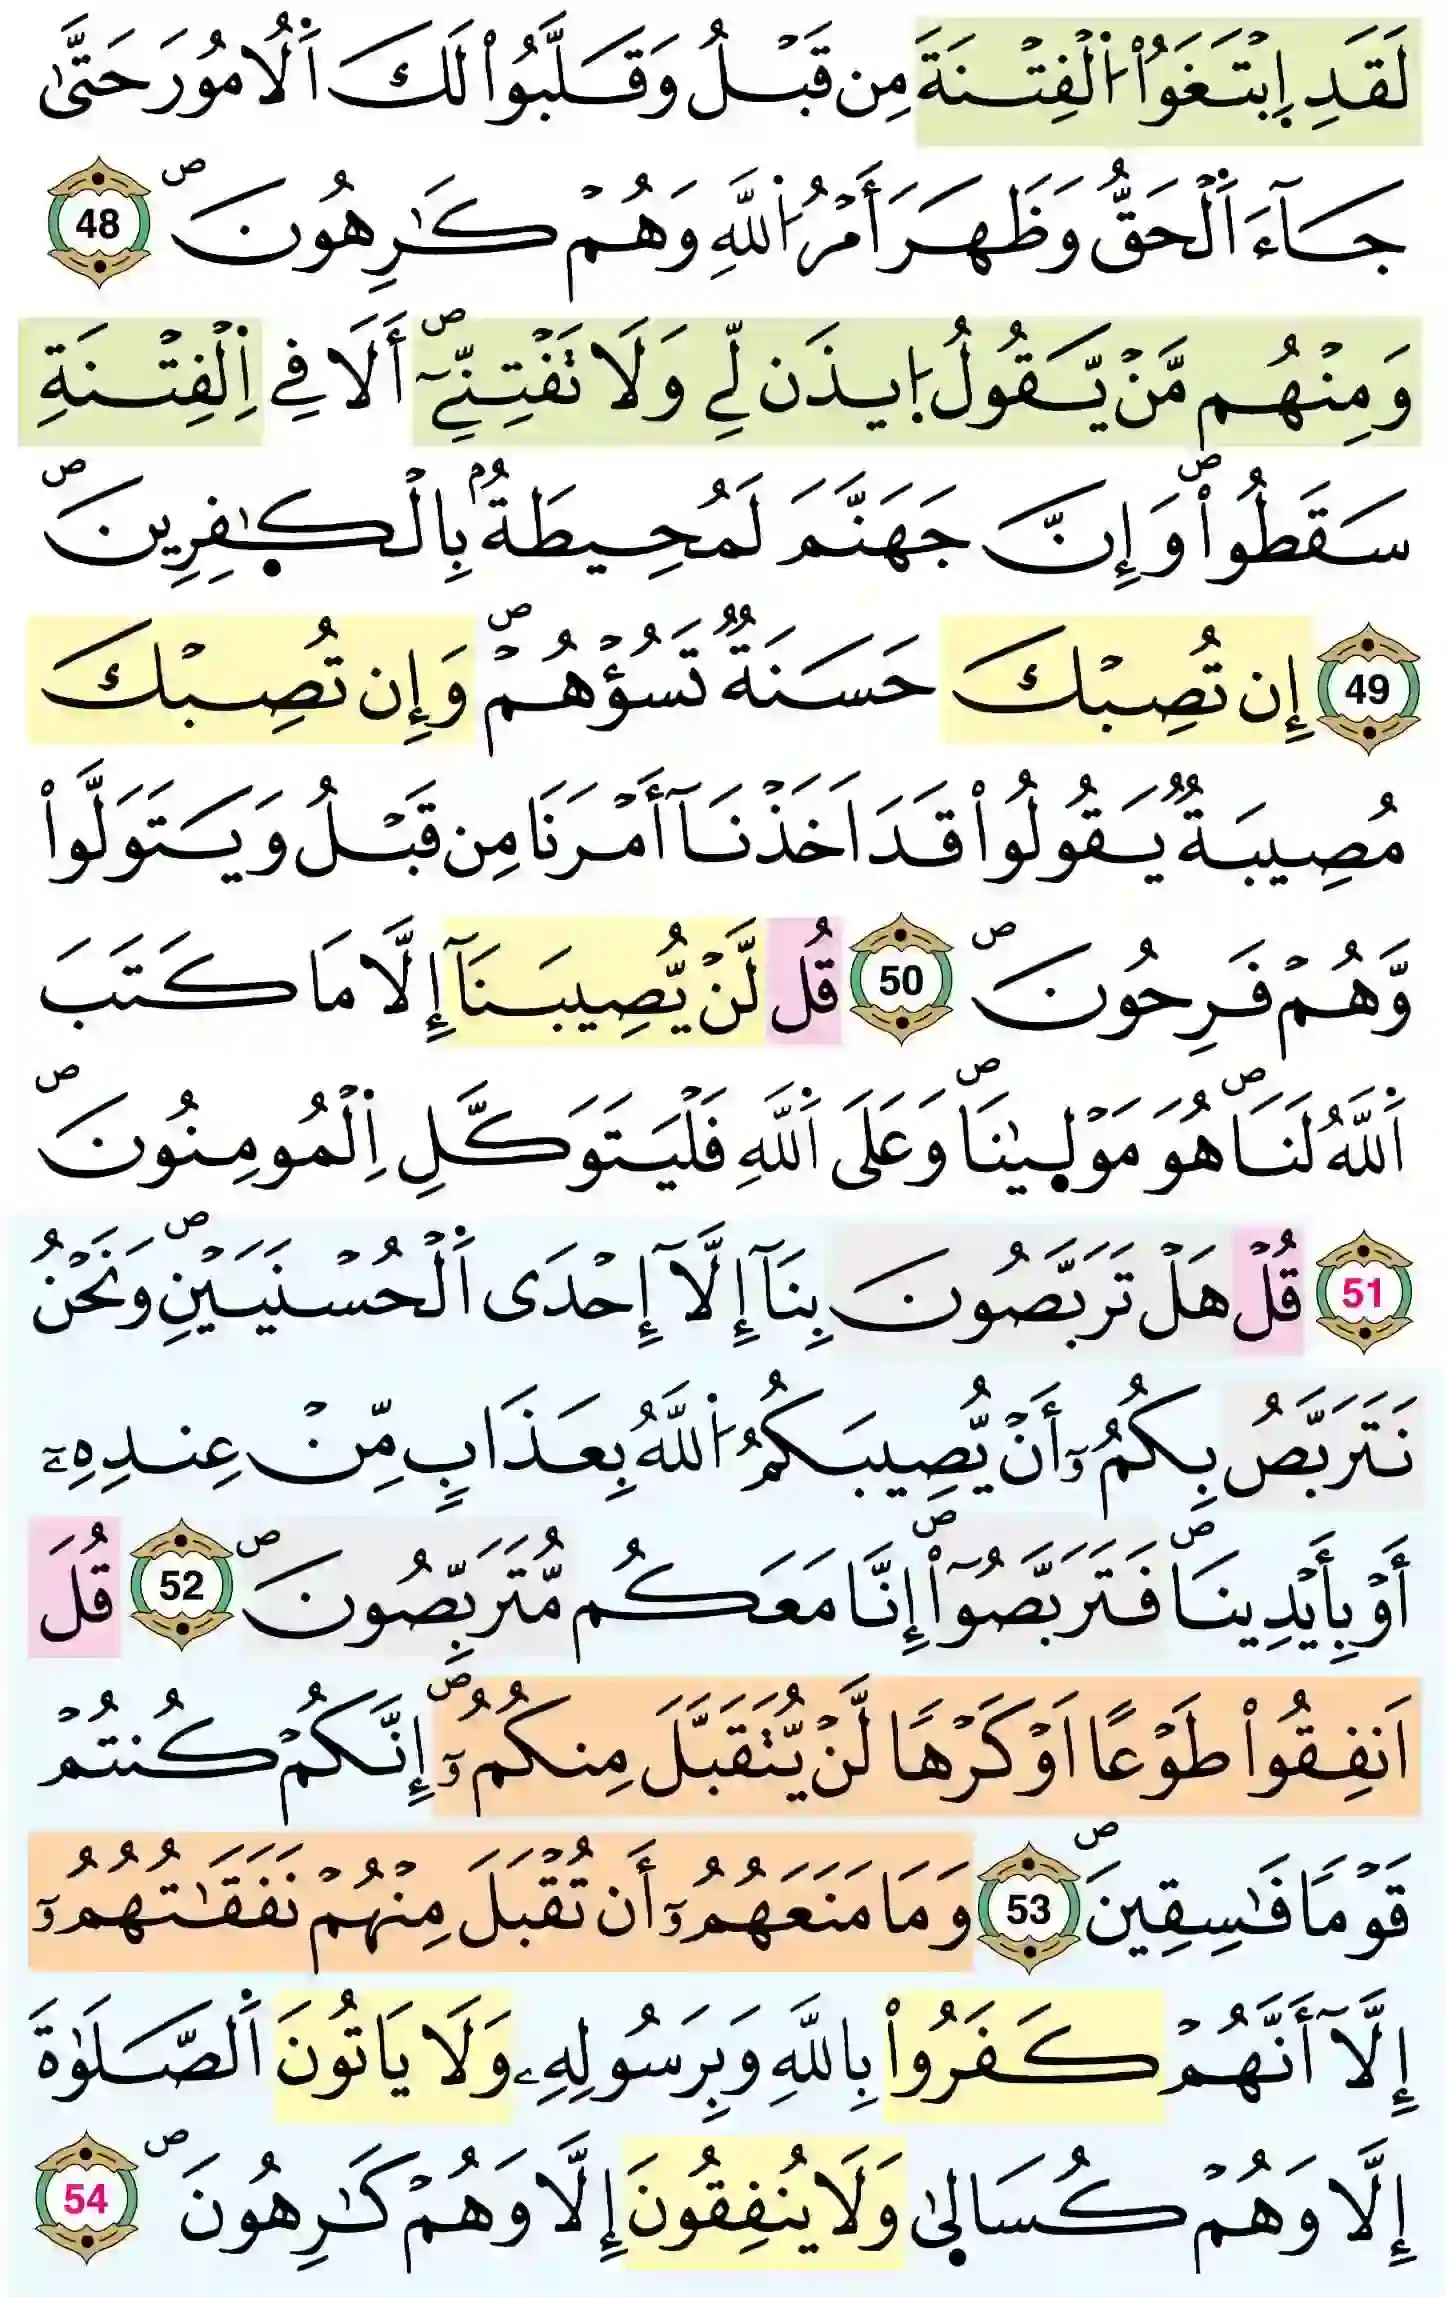 لَقَدِ اِ۪بْتَغَوُاْ اُ۬لْفِتْنَةَ مِن قَبْلُ وَقَلَّبُواْ لَكَ اَ۬لُامُورَ حَتَّىٰ
جَآءَ اَ۬لْحَقُّ وَظَهَرَ أَمْرُ اُ۬للَّهِ وَهُمْ كَٰرِهُونَۖ 48
وَمِنْهُم مَّنْ يَّقُولُ اُ۪يذَن لِّے وَلَا تَفْتِنِّےٓۖ أَلَا فِے اِ۬لْفِتْنَةِ
سَقَطُواْۖ وَإِنَّ جَهَنَّمَ لَمُحِيطَةُۢ بِالْكٰ۪فِرِينَۖ
49 إِن تُصِبْكَ حَسَنَةٞ تَسُؤْهُمْۖ وَإِن تُصِبْكَ
مُصِيبَةٞ يَقُولُواْ قَدَ اَخَذْنَآ أَمْرَنَا مِن قَبْلُ وَيَتَوَلَّواْ
وَّهُمْ فَرِحُونَۖ 50 قُل لَّنْ يُّصِيبَنَآ إِلَّا مَا كَتَبَ
اَ۬للَّهُ لَنَاۖ هُوَ مَوْل۪يٰنَاۖ وَعَلَى اَ۬للَّهِ فَلْيَتَوَكَّلِ اِ۬لْمُومِنُونَۖ
51 قُلْ هَلْ تَرَبَّصُونَ بِنَآ إِلَّآ إِحْدَى اَ۬لْحُسْنَيَيْنِۖ وَنَحْنُ
نَتَرَبَّصُ بِكُمُۥٓ أَنْ يُّصِيبَكُمُ اُ۬للَّهُ بِعَذَابٖ مِّنْ عِندِهِۦٓ
أَوْ بِأَيْدِينَاۖ فَتَرَبَّصُوٓاْۖ إِنَّا مَعَكُم مُّتَرَبِّصُونَۖ 52 قُلَ
اَنفِقُواْ طَوْعاً اَوْ كَرْهاٗ لَّنْ يُّتَقَبَّلَ مِنكُمُۥٓۖ إِنَّكُمْ كُنتُمْ
قَوْماٗ فَٰسِقِينَۖ 53 وَمَا مَنَعَهُمُۥٓ أَن تُقْبَلَ مِنْهُمْ نَفَقَٰتُهُمُۥٓ
إِلَّآ أَنَّهُمْ كَفَرُواْ بِاللَّهِ وَبِرَسُولِهِۦ وَلَا يَاتُونَ اَ۬لصَّلَوٰةَ
إِلَّا وَهُمْ كُسَال۪يٰ وَلَا يُنفِقُونَ إِلَّا وَهُمْ كَٰرِهُونَۖ 54